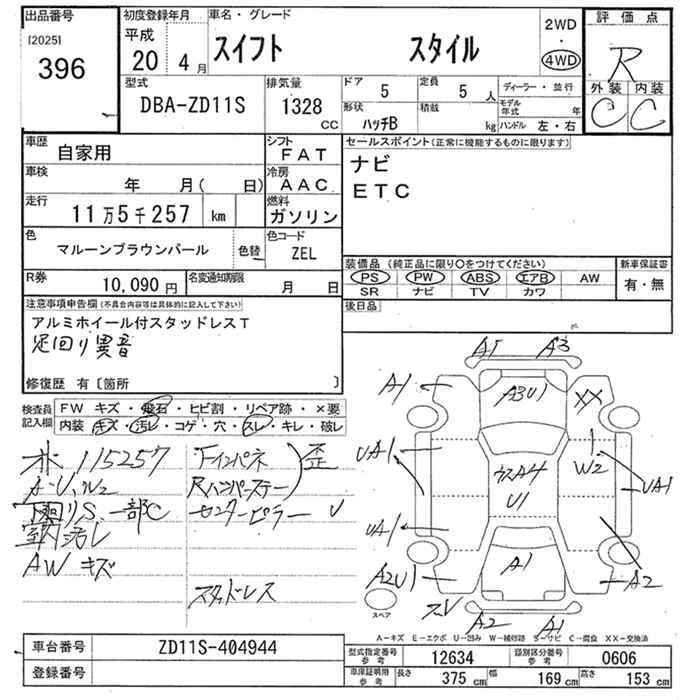 出品番号
[2025]
396
初度登録年月
平成
20 4月
車名・グレード
スイフト スタイル
2WD
・
4WD
評価点
R
外装 内装
C C
型式
DBA-ZD11S
排気量
1328
CC
ドア
5
定員
5 人
形状
ハッチB
積載
kg
ディーラー・並行
モデル年式 年
ハンドル 左・右
車歴
自家用
シフト
FAT
車検
年 月( 日)
冷房
AAC
走行
11万5千257 km
燃料
ガソリン
色
マルーンブラウンパール
色替
色コード
ZEL
R券
10,090 円
名変通知期限
月 日
セールスポイント(正常に機能するものに限ります)
ナビ
ETC
装備品 (純正品に限り○をつけてください)
PS PW ABS エアB AW
SR ナビ TV カワ
新車保証書
有・無
後日品
注意事項申告欄(不具合内容等は具体的に記入して下さい)
アルミホイール付スタッドレスT
足回り異音
修復歴 有〔箇所 〕
検査員
記入欄
FW キズ・飛石・ヒビ割・リペア跡・×要
内装 キズ・汚レ・コゲ・穴・スレ・キレ・破レ
115257
A・U、W2
下廻りS 一部C
室内汚レ
AWキズ
Fインパネ
歪
センターピラー U
スタッドレス
A1 A3
A1
A3U1
XX
UA1
W2
UA1
U1
UA1
A2U1
A1
A2
A2 A1
スペア
A-キズ E-エクボ U-凹み W-補修跡 S-サビ C-腐食 XX-交換済
車台番号
ZD11S-404944
登録番号
型式指定番号
参考
12634
類別区分番号
参考
0606
車庫証明用
参考
長さ 375 cm
幅 169 cm
高さ 153 cm